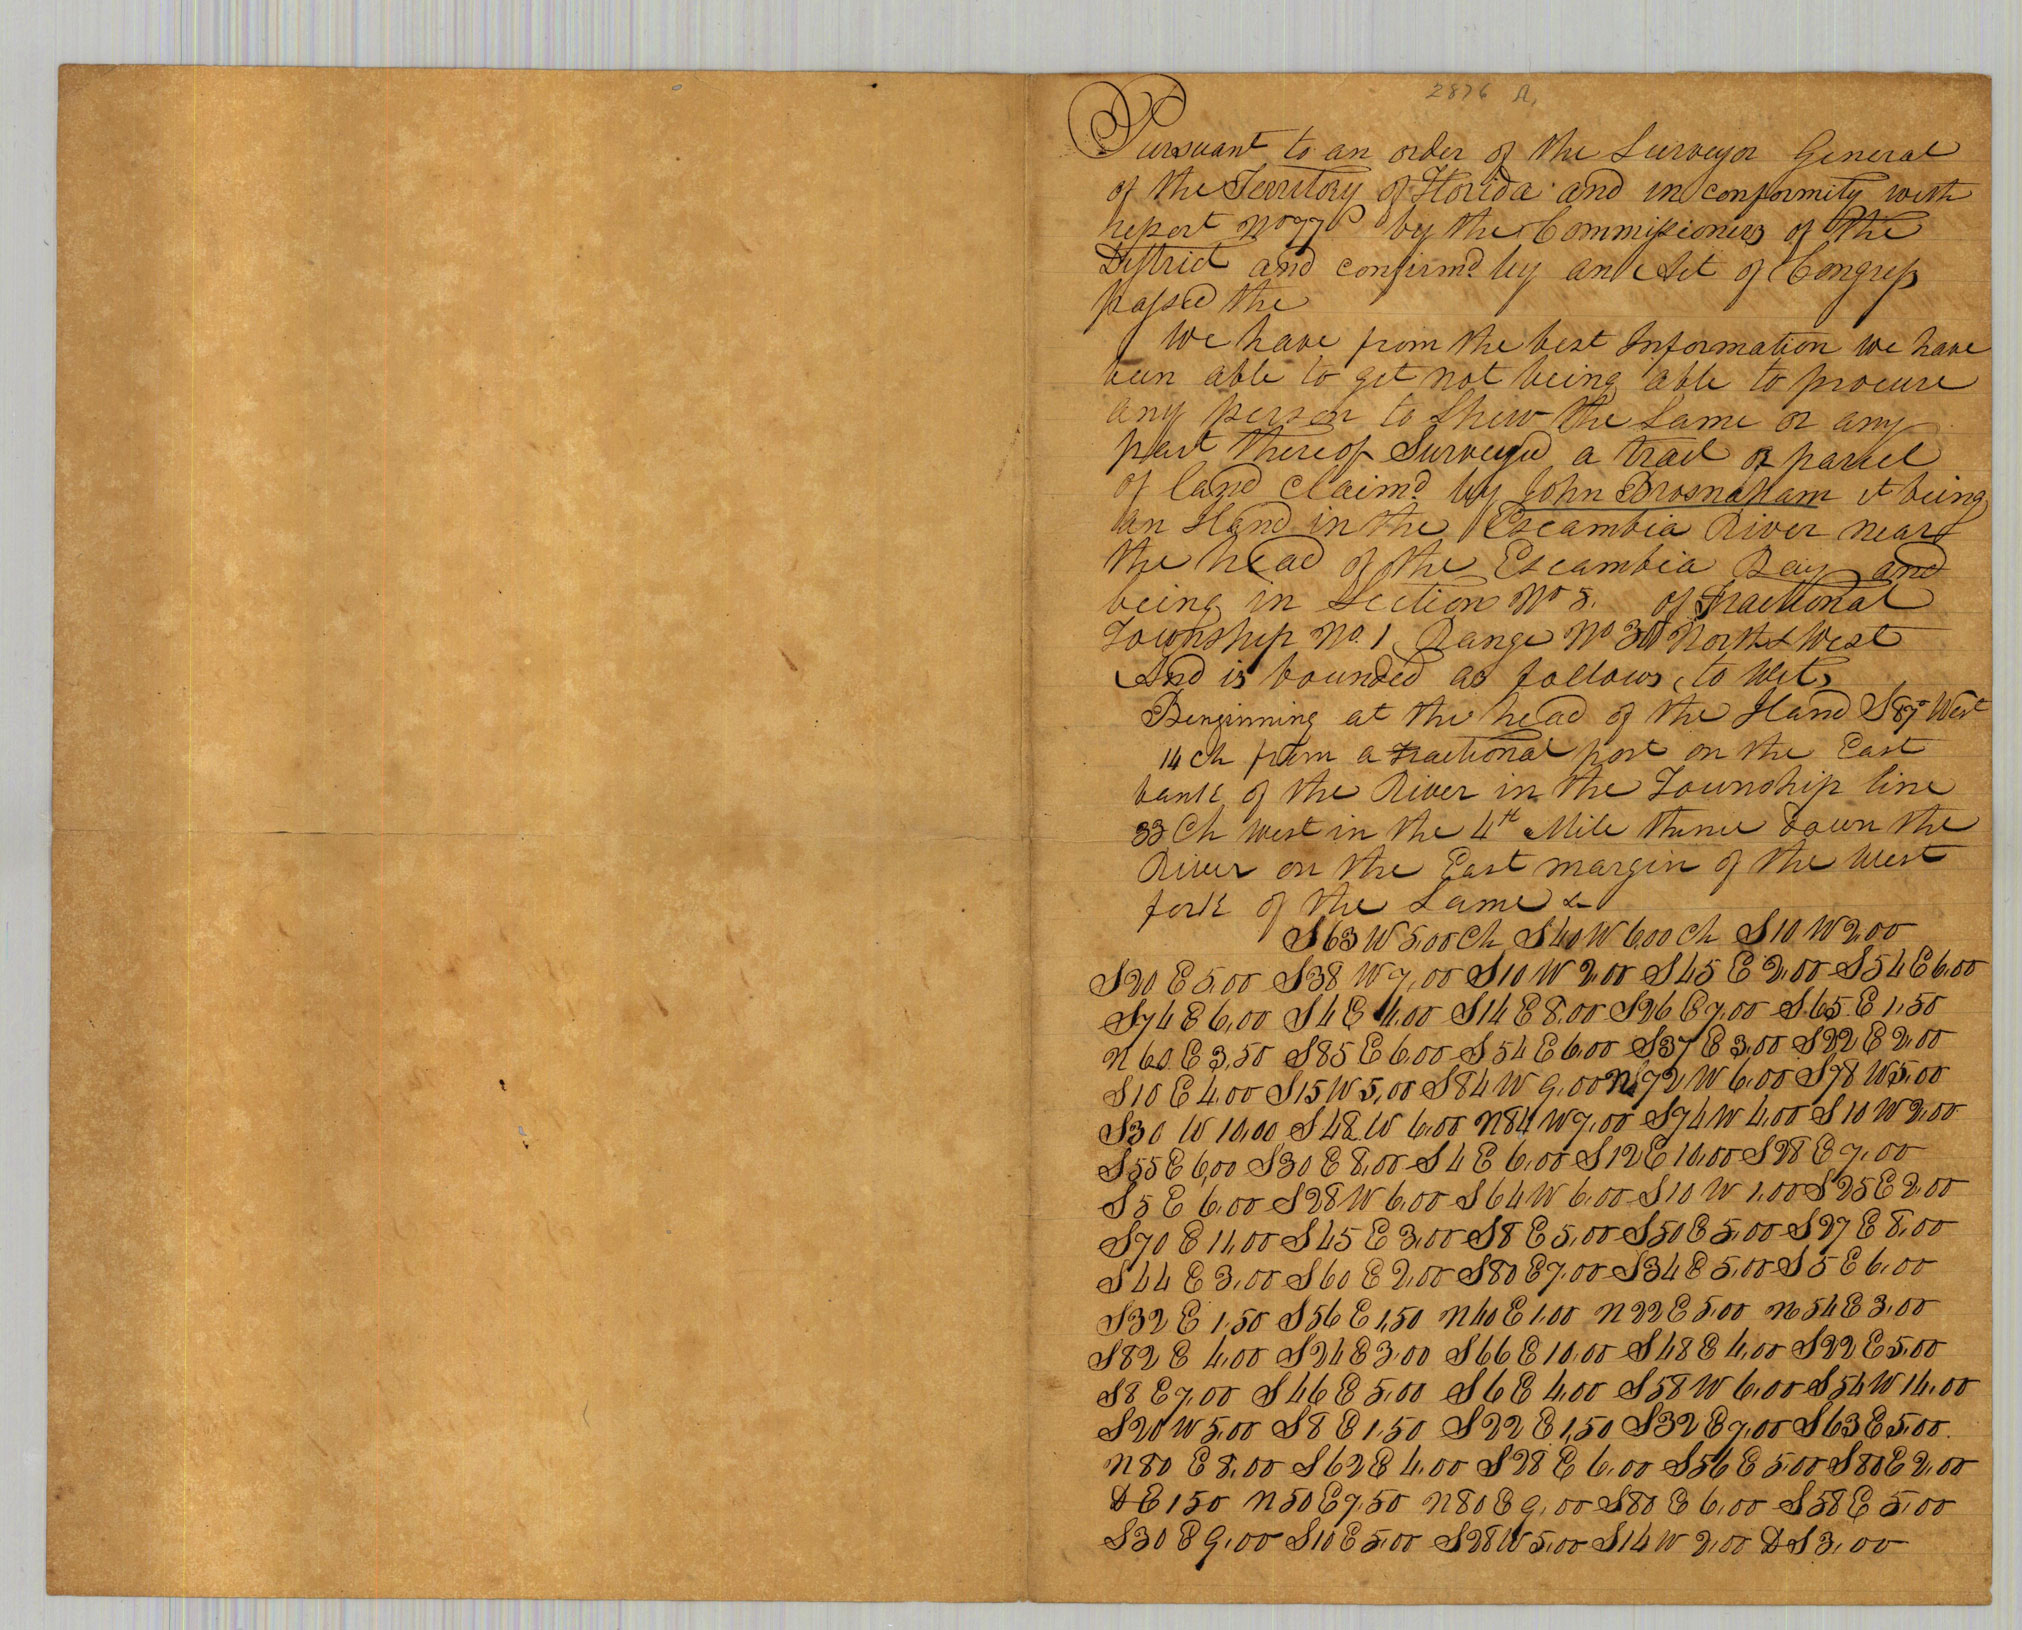 2876 A,
Pursuant to an order of the Surveyor General
of the Territory of Florida and in conformity with
report No 77 by the Commissioners of the
District and confirmd by an Act of Congress
passed the
We have from the best Information we have
been able to get not being able to procure
any person to Shew the Same or any
part thereof Surveyed a tract or parcel
of land Claimd by John Brosnaham it being
an Iland in the Escambia River near
the head of the Escambia Bay and
being in Section No 5. of Fractional
Township No. 1 Range No 30 North & West
And is bounded as follows, to Wit,
Benginning at the head of the Iland S 87 West
14 Ch from a Fractional post on the East
bank of the River in the Township line
33 Ch West in the 4th Mile thence down the
River on the East margin of the West
fork of the Same &
S 63 W 5,00 Ch S 40 W 6,00 Ch S 10 W 2,00
S 20 E 5,00 S 38 W 7,00 S 10 W 2,00 S 45 E 2,00 S 54 E 6,00
S 74 E 6,00 S 4 E 4,00 S 14 E 8,00 S 26 E 7,00 S 65 E 1,50
N 60 E 3,50 S 85 E 6,00 S 54 E 6,00 S 37 E 3,00 S 22 E 2,00
S 10 E 4,00 S 15 W 5,00 S 84 W 9,00 N 72 W 6,00 S 78 W 5,00
S 30 W 10,00 S 48 W 6,00 N 84 W 7,00 S 74 W 4,00 S 10 W 2,00
S 55 E 6,00 S 30 E 8,00 S 4 E 6,00 S 12 E 10,00 S 28 E 7,00
S 5 E 6,00 S 28 W 6,00 S 64 W 6,00 S 10 W 1,00 S 25 E 2,00
S 70 E 11,00 S 45 E 3,00 S 8 E 5,00 S 50 E 5,00 S 27 E 8,00
S 44 E 3,00 S 60 E 2,00 S 80 E 7,00 S 34 E 5,00 S 5 E 6,00
S 32 E 1,50 S 56 E 1,50 N 40 E 1,00 N 22 E 5,00 N 54 E 3,00
S 82 E 4,00 S 24 E 3,00 S 66 E 10,00 S 48 E 4,00 S 22 E 5,00
S 8 E 7,00 S 46 E 5,00 S 6 E 4,00 S 58 W 6,00 S 54 W 14,00
S 20 W 5,00 S 8 E 1,50 S 22 E 1,50 S 32 E 7,00 S 63 E 5,00
N 80 E 8,00 S 62 E 4,00 S 28 E 6,00 S 56 E 5,00 S 80 E 2,00
D E 1,50 N 50 E 7,50 N 80 E 9,00 S 80 E 6,00 S 58 E 5,00
S 30 E 9,00 S 10 E 5,00 S 28 W 5,00 S 14 W 2,00 D S 3,00